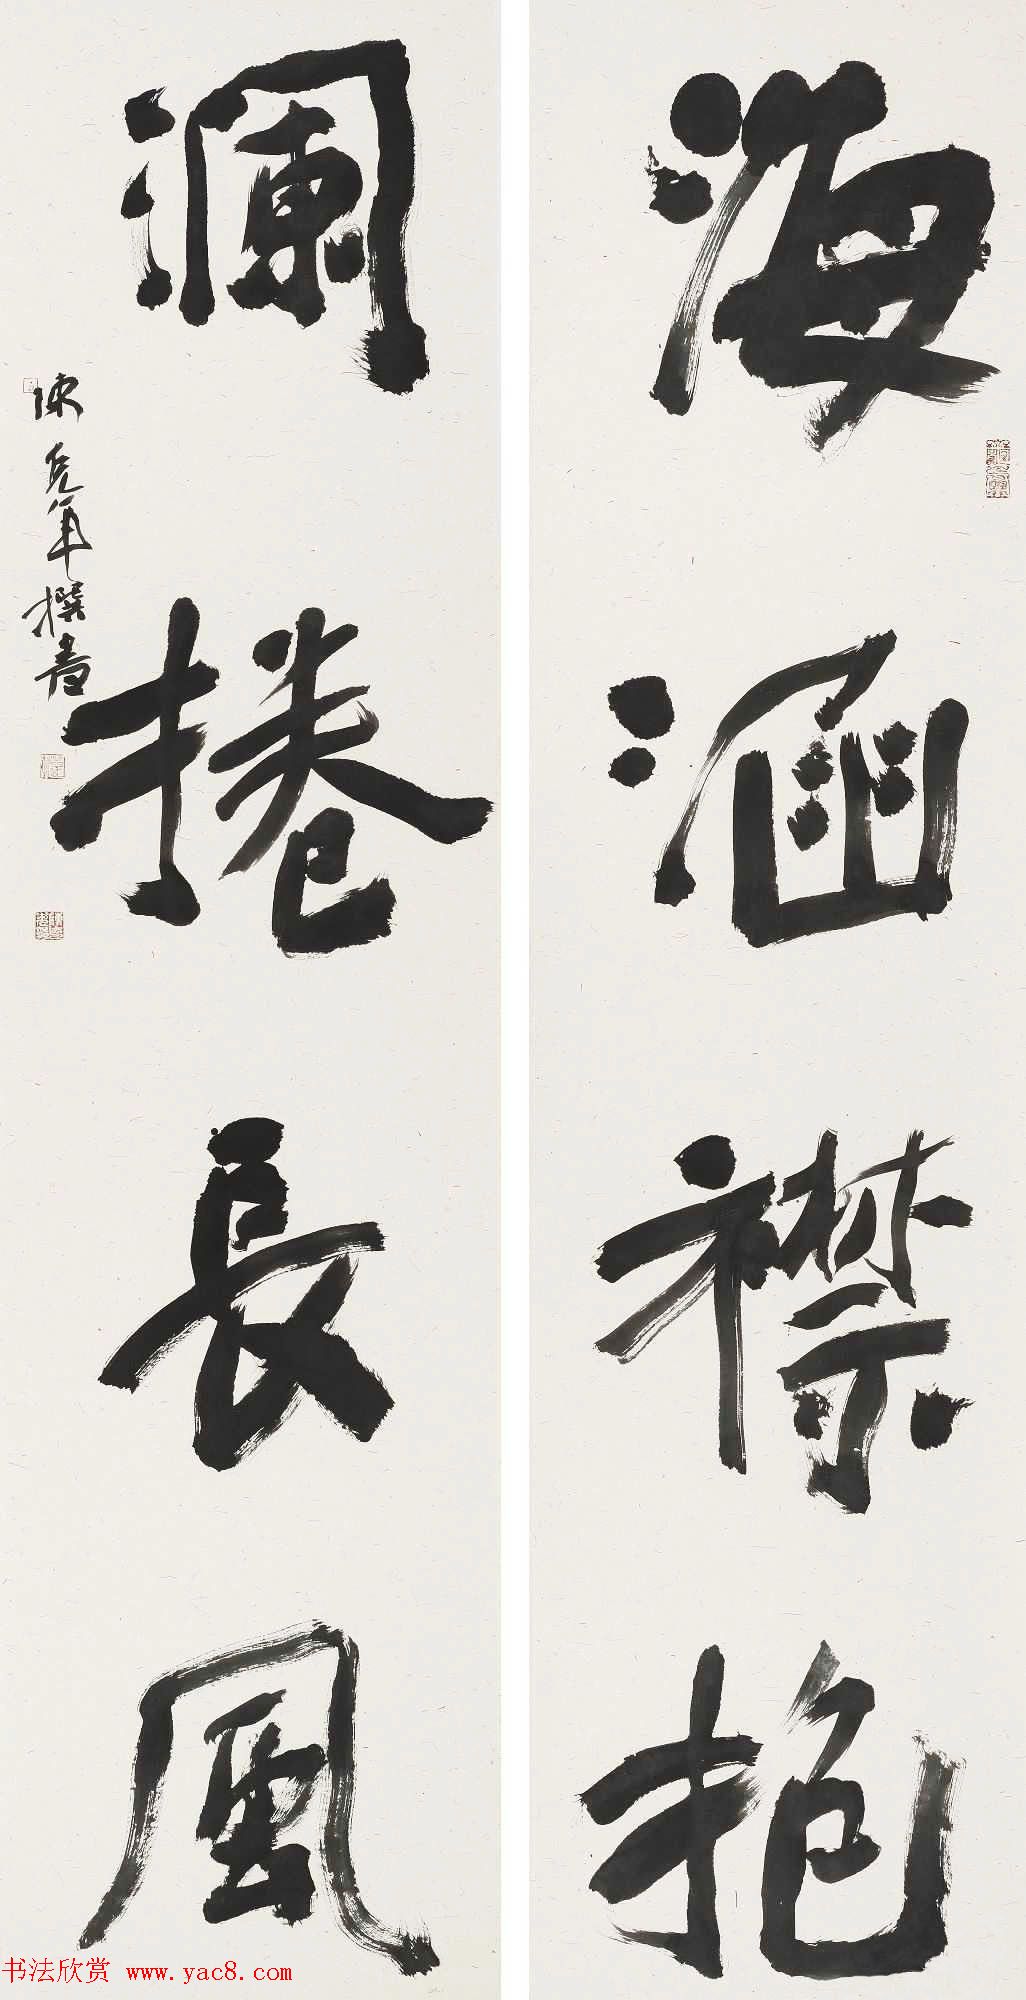 海涵襟抱
澜捲長風
陳克年撰書
书法欣赏 www.yac8.com